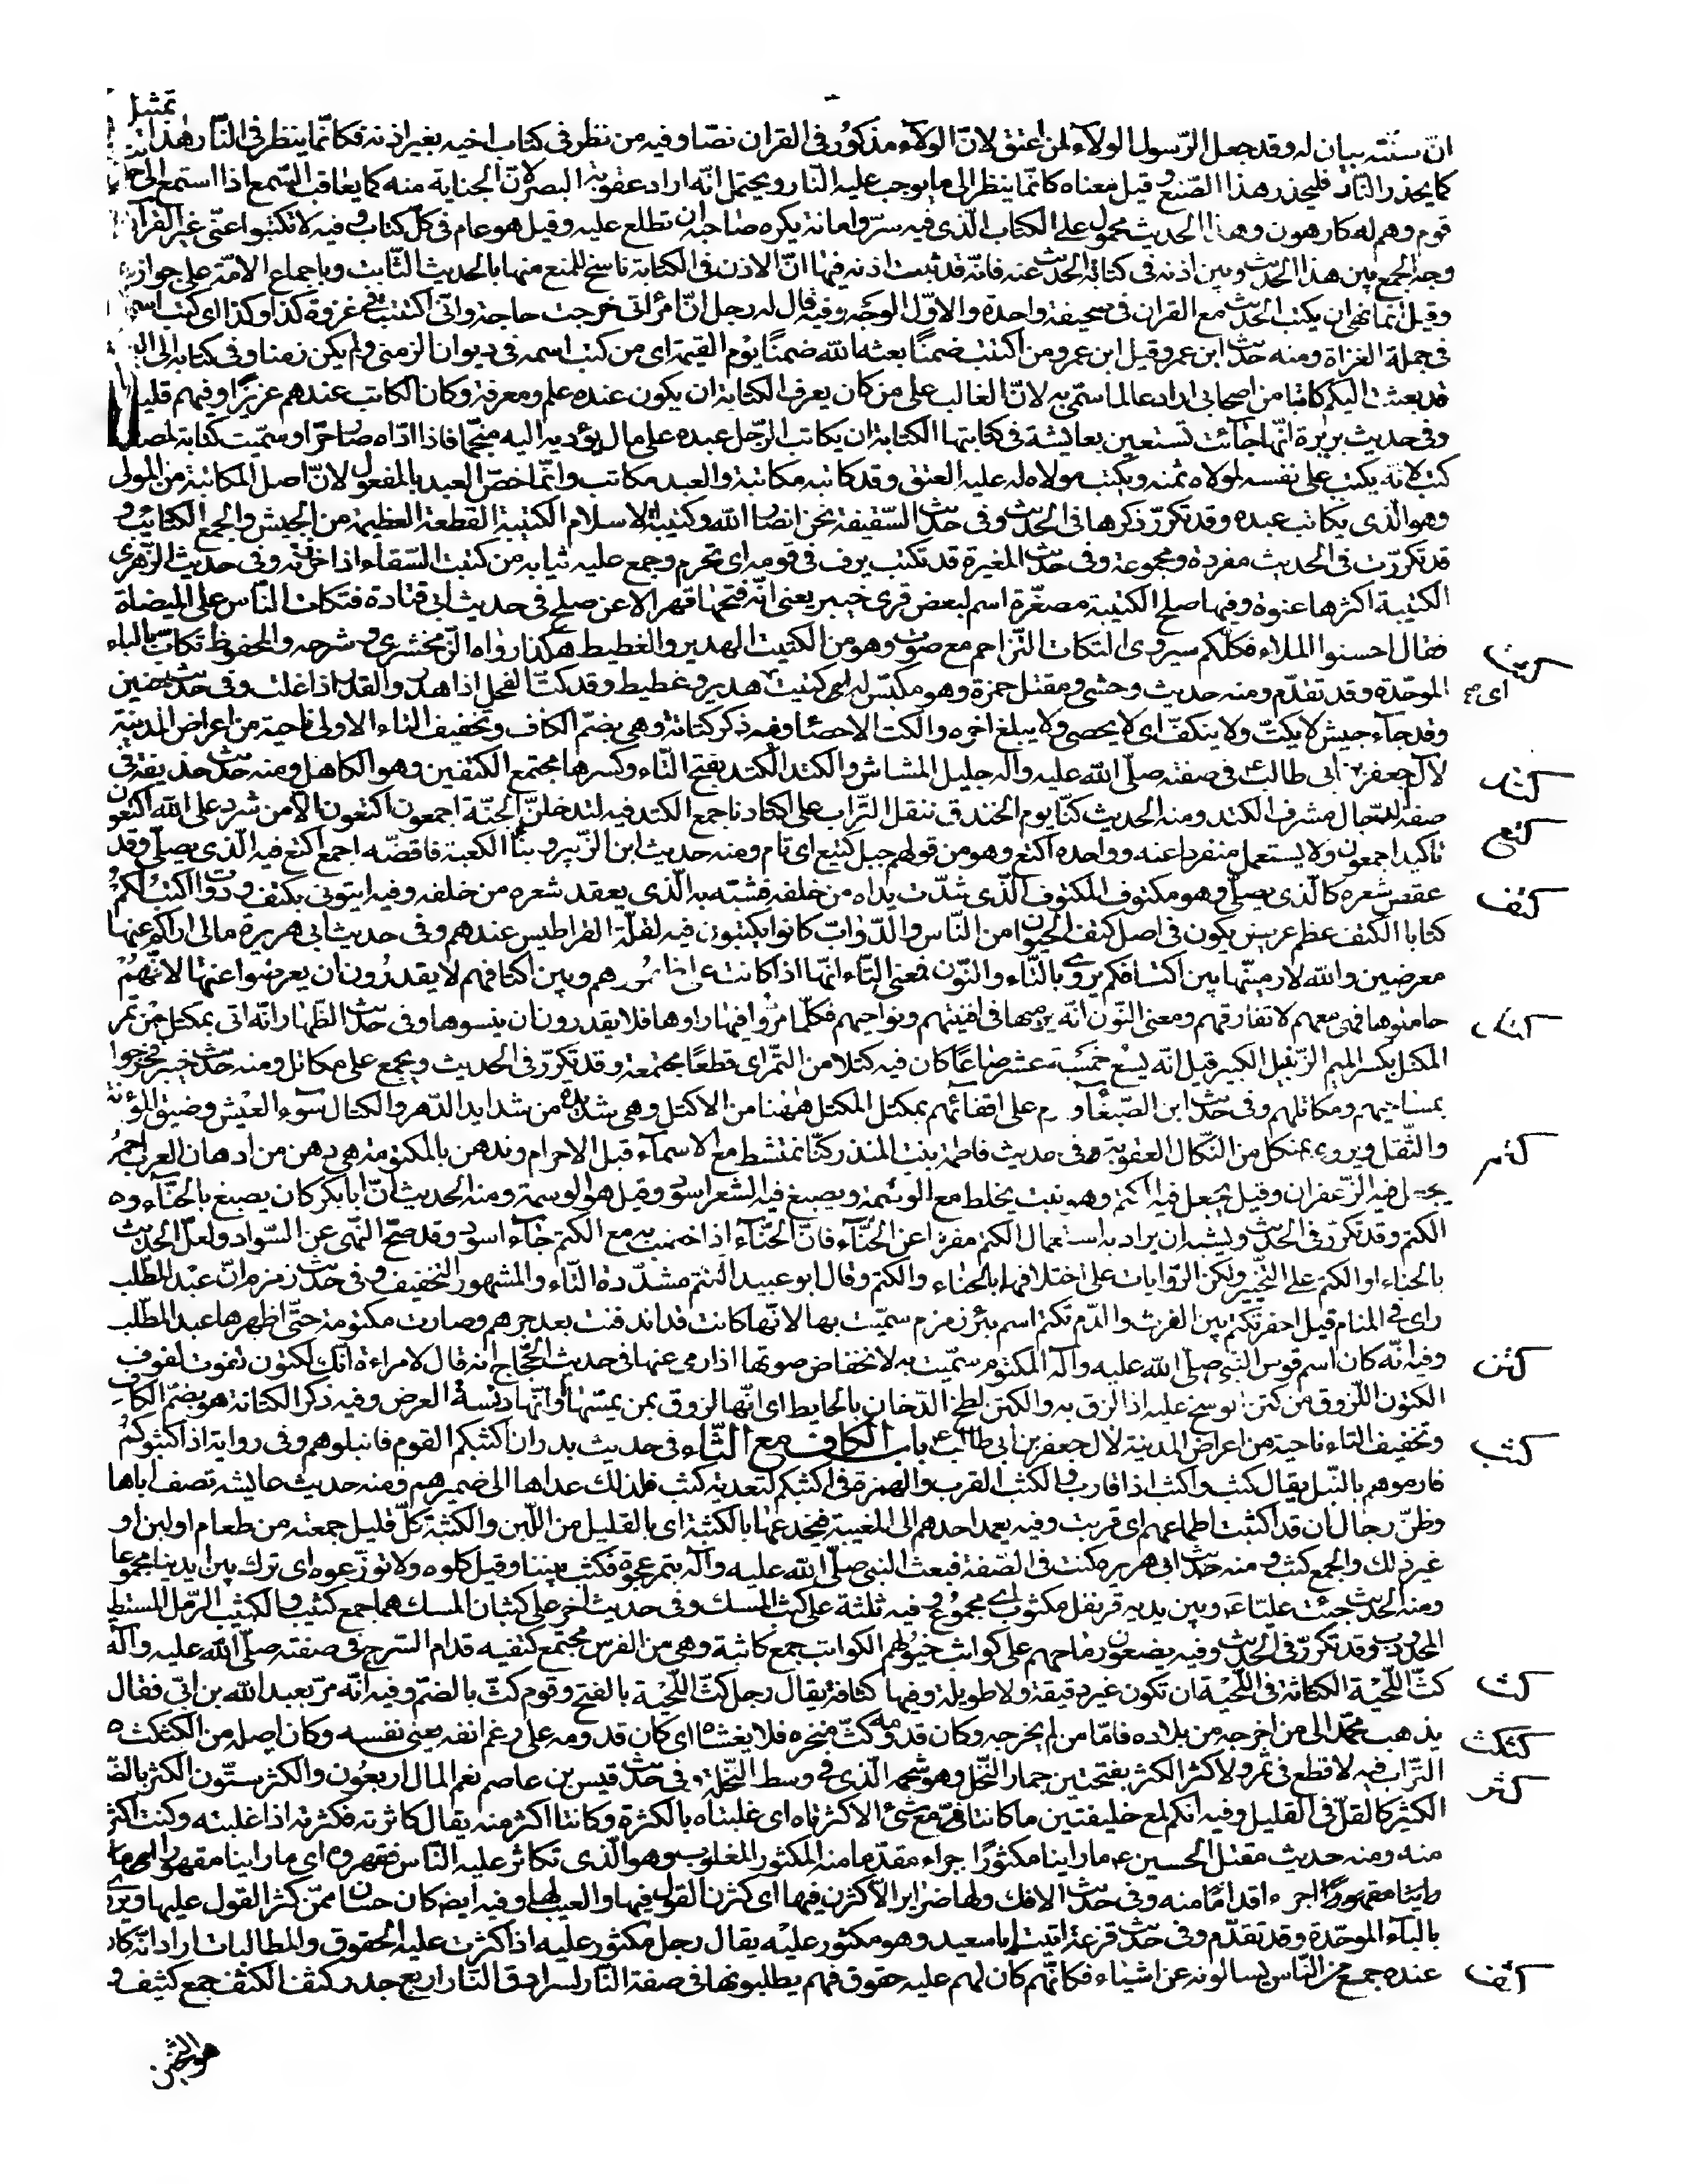 تمثيل
ان سنته بيان له وقد جعل الرسول الولاء لمن اعتق لان الولاء مذكور في القران نصا وفيه من نظر في كتاب اخيه بغير اذنه فكانما ينظر في النار هذا
كما يحذر النار فليحذر هذا الصنع وقيل معناه كانما ينظر الى ما يوجب عليه النار ويحتمل انه اراد عقوبة البصر لان الجناية منه كما يعاقب السمع اذا استمع الى
قوم وهم له كارهون وهذا الحديث محمول على الكتاب الذي فيه سر وامانة يكره صاحبه ان تطلع عليه وقيل هو عام في كل كتاب وفيه لا تكتبوا عني غير القرآن
وجه الجمع بين هذا الحديث وبين اذنه في كتابة الحديث عنه فانه قد ثبت اذنه فيها ان الاذن في الكتابة ناسخ للمنع منها بالحديث الثابت وباجماع الامة على جوازها
وقيل انما نهى ان يكتب الحديث مع القران في صحيفة واحدة والاول الوجه وفيه قال له رجل ان امرأتي خرجت حاجة واني اكتتبت في غزوة كذا وكذا اي كتب اسمي
في جملة الغزاة ومنه حديث ابن عمر وقيل ابن عمرو من اكتتب ضمنًا بعثه الله ضمنًا يوم القيمة اي من كتب اسمه في ديوان الزمنى ولم يكن زمنا وفي كتابه الى
قد بعثت اليكم كاتبا من اصحابي اراد عالما سمي به لان الغالب على من كان يعرف الكتابة ان يكون عنده علم ومعرفة وكان الكاتب عندهم عزيزًا وفيهم قليلا
وفي حديث بريرة انها جائت تستعين بعايشة في كتابتها الكتابة ان يكاتب الرجل عبده على مال يؤديه اليه منجما فاذا اداه صار حرا وسميت كتابة لمصدر
كتب لانه يكتب على نفسه لمولاه ثمنه ويكتب مولاه له عليه العتق وقد كاتبه مكاتبة والعبد مكاتب وانما خص العبد بالمفعول لان اصل المكاتبة من المولى
وهو الذي يكاتب عبده وقد تكرر ذكرها في الحديث وفي حديث السقيفة نحن انصار الله وكتيبة الاسلام الكتيبة القطعة العظيمة من الجيش والجمع الكتائب و
قد تكررت في الحديث مفردة ومجموعة وفي حديث المغيرة قد تكتب يزف في قومه اي تحزم وجمع عليه ثيابه من كتبت السقاء اذا خرزته وفي حديث الزهري
الكتيبة اكثرها عنوة وفيها صلح الكتيبة مصغرة اسم لبعض قرى خيبر يعني انه فتحها قهرا لا عن صلح في حديث ابي قتادة فتكات الناس على الميضاة
كتت فقال احسنوا الملاء فكلكم سيروى التكات التزاحم مع صوت وهو من الكتيت الهدير والغطيط هكذا رواه الزمخشري وشرحه والمحفوظ تكاب بالباء
الموحدة وقد تقدم ومنه حديث وحشي ومقتل حمزة وهو مكبس له كتيت اي هدير وغطيط وقد كت الفحل اذا هدر والقدر اذا غلت وفي حديث حنين
وقد جاء جيش لا يكت ولا ينكف اي لا يحصى ولا يبلغ اخره والكت الاحصاء وفيه ذكر كتانة وهي بضم الكاف وتخفيف التاء الاولى ناحية من اعراض المدينة
كتد لآل جعفر بن ابي طالب في صفته صلى الله عليه وآله جليل المشاش والكتد الكتد بفتح التاء وكسرها مجتمع الكتفين وهو الكاهل ومنه حديث حذيفة في
صفة الدجال مشرف الكتد ومنه الحديث كنا يوم الخندق ننقل التراب على اكتادنا جمع الكتد فيه لتدخلن الجنة اجمعون اكتعون الا من شرد على الله اكتعون
كتع تاكيد اجمعون ولا يستعمل منفردا عنه وواحده اكتع وهو من قولهم جبل كتيع اي تام ومنه حديث ابن الزبير وبناء الكعبة فاقضه اجمع اكتع فيه الذي يصلي وقد
كتف عقص شعره كالذي يصلي وهو مكتوف المكتوف الذي شدت يداه من خلفه فشبه به الذي يعقد شعره من خلفه وفيه ايتوني بكتف ودواة اكتب لكم
كتابا الكتف عظم عريض يكون في اصل كتف الحيوان من الناس والدواب كانوا يكتبون فيه لقلة القراطيس عندهم وفي حديث ابي هريرة مالي اراكم عنها
معرضين والله لارمينها بين اكتافكم يروى بالتاء والنون فمعنى التاء انها اذا كانت على ظهورهم وبين اكتافهم لا يقدرون ان يعرضوا عنها لانهم
كتل حاملوها فهي معهم لا تفارقهم ومعنى النون انه يرميها في افنيتهم ونواحيهم فكلما مروا فيها راوها فلا يقدرون ان ينسوها وفي حديث الظهار انه اتى بمكتل من تمر
المكتل بكسر الميم الزنبيل الكبير قيل انه يسع خمسة عشر صاعًا كان فيه كتلا من التمر اي قطعًا مجتمعة وقد تكرر في الحديث ويجمع على مكاتل ومنه حديث خيبر فخرجوا
بمساحيهم ومكاتلهم وفي حديث ابن الصبغاء وارم على اقفائهم بمكتل المكتل ههنا من الاكتل وهي شديدة من شدايد الدهر والكتال سوء العيش وضيق المؤنة
كتم والثقل ويروى بمنكل من النكال العقوبة وفي حديث فاطمة بنت المنذر كنا نمتشط مع الاسماء قبل الاحرام وندهن بالمكتومة هي دهن من ادهان العرب احمر
يجعل فيه الزعفران وقيل يجعل فيه الكتم وهو نبت يخلط مع الوسمة ويصبغ فيه الشعر اسود وقيل هو الوسمة ومنه الحديث ان ابا بكر كان يصبغ بالحناء و
الكتم وقد تكرر في الحديث ويشبه ان يراد به استعمال الكتم مفردا عن الحناء فان الحناء اذا خضبت به مع الكتم جاء اسود وقد صح النهي عن السواد ولعل الحديث
بالحناء او الكتم على التخيير ولكن الروايات على اختلافها بالحناء والكتم وقال ابو عبيد الكتم مشددة التاء والمشهور التخفيف وفي حديث زمزم ان عبد المطلب
راى في المنام قيل احفر تكتم بين الفرث والدم تكتم اسم بئر زمزم سميت بها لانها كانت قد اندفنت بعد جرهم وصارت مكتومة حتى اظهرها عبد المطلب
كتن وفيه انه كان اسم قوس النبي صلى الله عليه وآله المكتوم سميت به لانخفاض صوتها اذا رمي عنها في حديث الحجاج انه قال لامراءة انك لكتون لفوت لقوف
الكتون اللزوق من كتن الوسخ عليه اذا لزق به والكتن لطخ الدخان بالحايط اي انها لزوق بمن يمسها او انها دنسة العرض وفيه ذكر الكتانة هو بضم الكاف
كثب وتخفيف التاء ناحية من اعراض المدينة لآل جعفر بن ابي طالب باب الكاف مع الثاء في حديث بدر ان اكثبكم القوم فانبلوهم وفي رواية اذا اكثبوكم
فارموهم بالنبل يقال كثب واكثب اذا قارب والكثب القرب والهمزة في اكثبكم لتعدية كثب فلذلك عداها الى ضميرهم ومنه حديث عايشة تصف اباها
وظن رجال ان قد اكثبت اطماعهم اي قربت وفيه يعمد احدهم الى المغيبة فيخدعها بالكثبة اي بالقليل من اللبن والكثبة كل قليل جمعته من طعام او لبن او
غير ذلك والجمع كثب ومنه حديث ابي هريرة كنت في الصفة فبعث النبي صلى الله عليه وآله بتمر عجوة فكثب بيننا وقيل كلوه ولا توزعوه اي ترك بين ايدينا مجموعا
ومنه الحديث جئت عليا ع وبين يديه قرنفل مكثوب اي مجموع وفيه ثلثة على كثب المسك وفي حديث اخر على كثبان المسك هما جمع كثيب والكثيب الرمل المستطيل
المحدودب وقد تكرر في الحديث وفيه يضعون رماحهم على كواثب خيولهم الكواثب جمع كاثبة وهي من الفرس مجتمع كتفيه قدام السرج في صفته صلى الله عليه وآله
كث كث اللحية الكثاثة في اللحية ان تكون غير دقيقة ولا طويلة وفيها كثافة يقال رجل كث اللحية بالفتح وقوم كث بالضم وفيه انه مر بعبد الله بن ابي فقال
كثكث يذهب محمد الى من اخرجه من بلاده فاما من لم يخرجه وكان قدومه كث منخره فلا يغشاه اي كان قدومه على رغم انفه يعني نفسه وكان اصله من الكثكث
كثر التراب فيه لا قطع في ثمر ولا كثر الكثر بفتحتين جمار النخل وهو شحمه الذي في وسط النخلة وفي حديث قيس بن عاصم نعم المال اربعون والكثر ستون الكثر بالضم
الكثير كالقل في القليل وفيه انكم لمع خليقتين ما كانتا في مع شئ الا كثرتاه اي غلبتاه بالكثرة وكانتا اكثر منه يقال كاثرته فكثرته اذا غلبته وكنت اكثر
منه ومنه حديث مقتل الحسين ع ما راينا مكثورًا اجراء مقدما منه المكثور المغلوب وهو الذي تكاثر عليه الناس فقهروه اي ما راينا مقهورا
راينا مقهورًا اجرء اقدامًا منه وفي حديث الافك ولها ضراير الا كثرن فيها اي كثرن القول فيها والعيب لها وفيه ايضا كان حسان ممن كثر القول عليها ويروى
بالباء الموحدة وقد تقدم وفي حديث قزعة اتيت ابا سعيد وهو مكثور عليه يقال رجل مكثور عليه اذا كثرت عليه الحقوق والمطالبات اراد انه كان
كثف عنده جمع من الناس يسالونه عن اشياء فكانهم كان لهم عليه حقوق فهم يطلبونها في صفة النار لسرادق النار اربع جدر كثف الكثف جمع كثيف و
هو الثخين